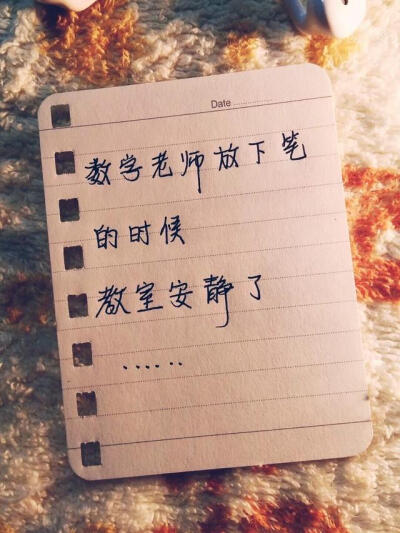 Date
数学老师放下笔
的时候
教室安静了
......